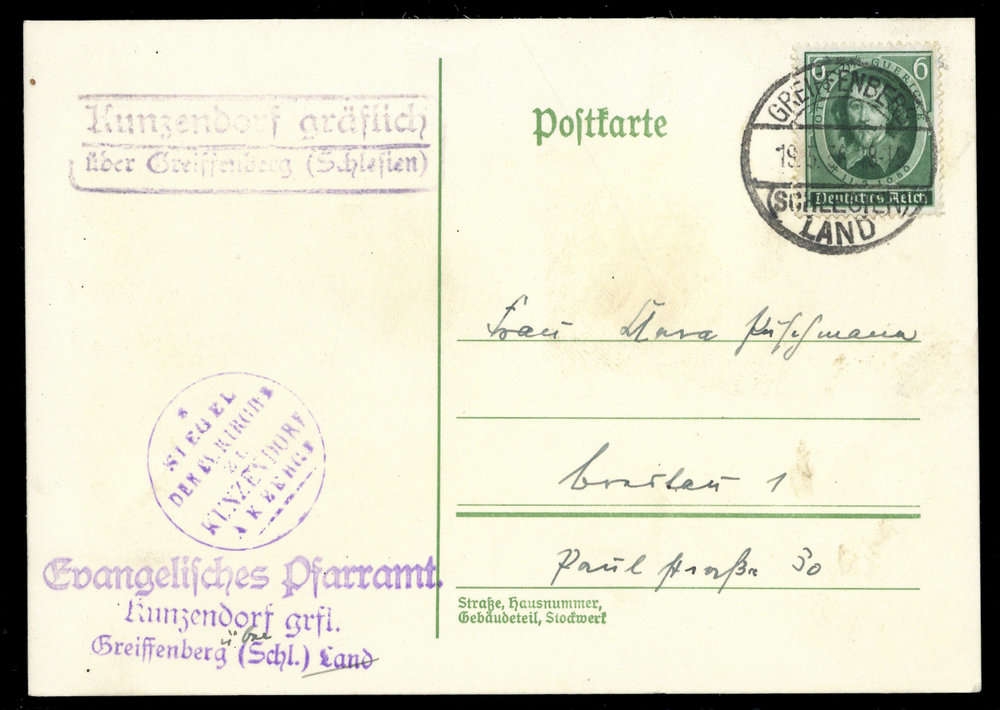 Kunzendorf gräflich
über Greiffenberg (Schlesien)
Postkarte
6 6
OTTO VON GUERICKE
† 11.5.1686
Deutsches Reich
GREIFFENBERG
(SCHLESIEN)
LAND
Frau Clara Puschmann
Breslau 1
Paulstraße 30
Straße, Hausnummer,
Gebäudeteil, Stockwerk
SIEGEL
DER EV. KIRCHE
ZU
KUNZENDORF
Evangelisches Pfarramt.
Kunzendorf grfl.
über
Greiffenberg (Schl.) Land